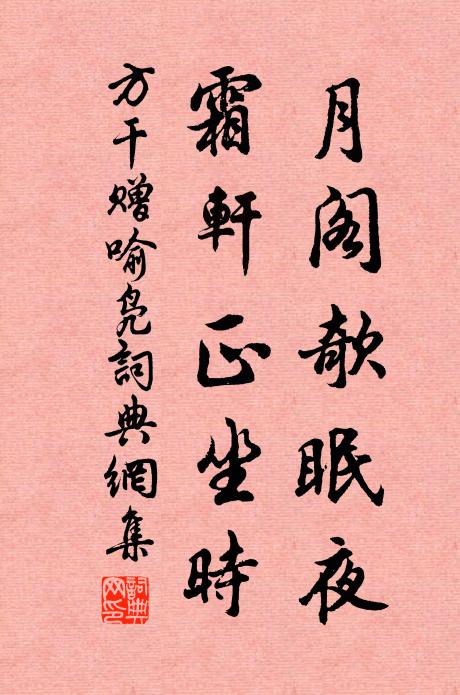 月閣欹眠夜
霜軒正坐時
方干贈喻鳧詞典網集
詞典網印